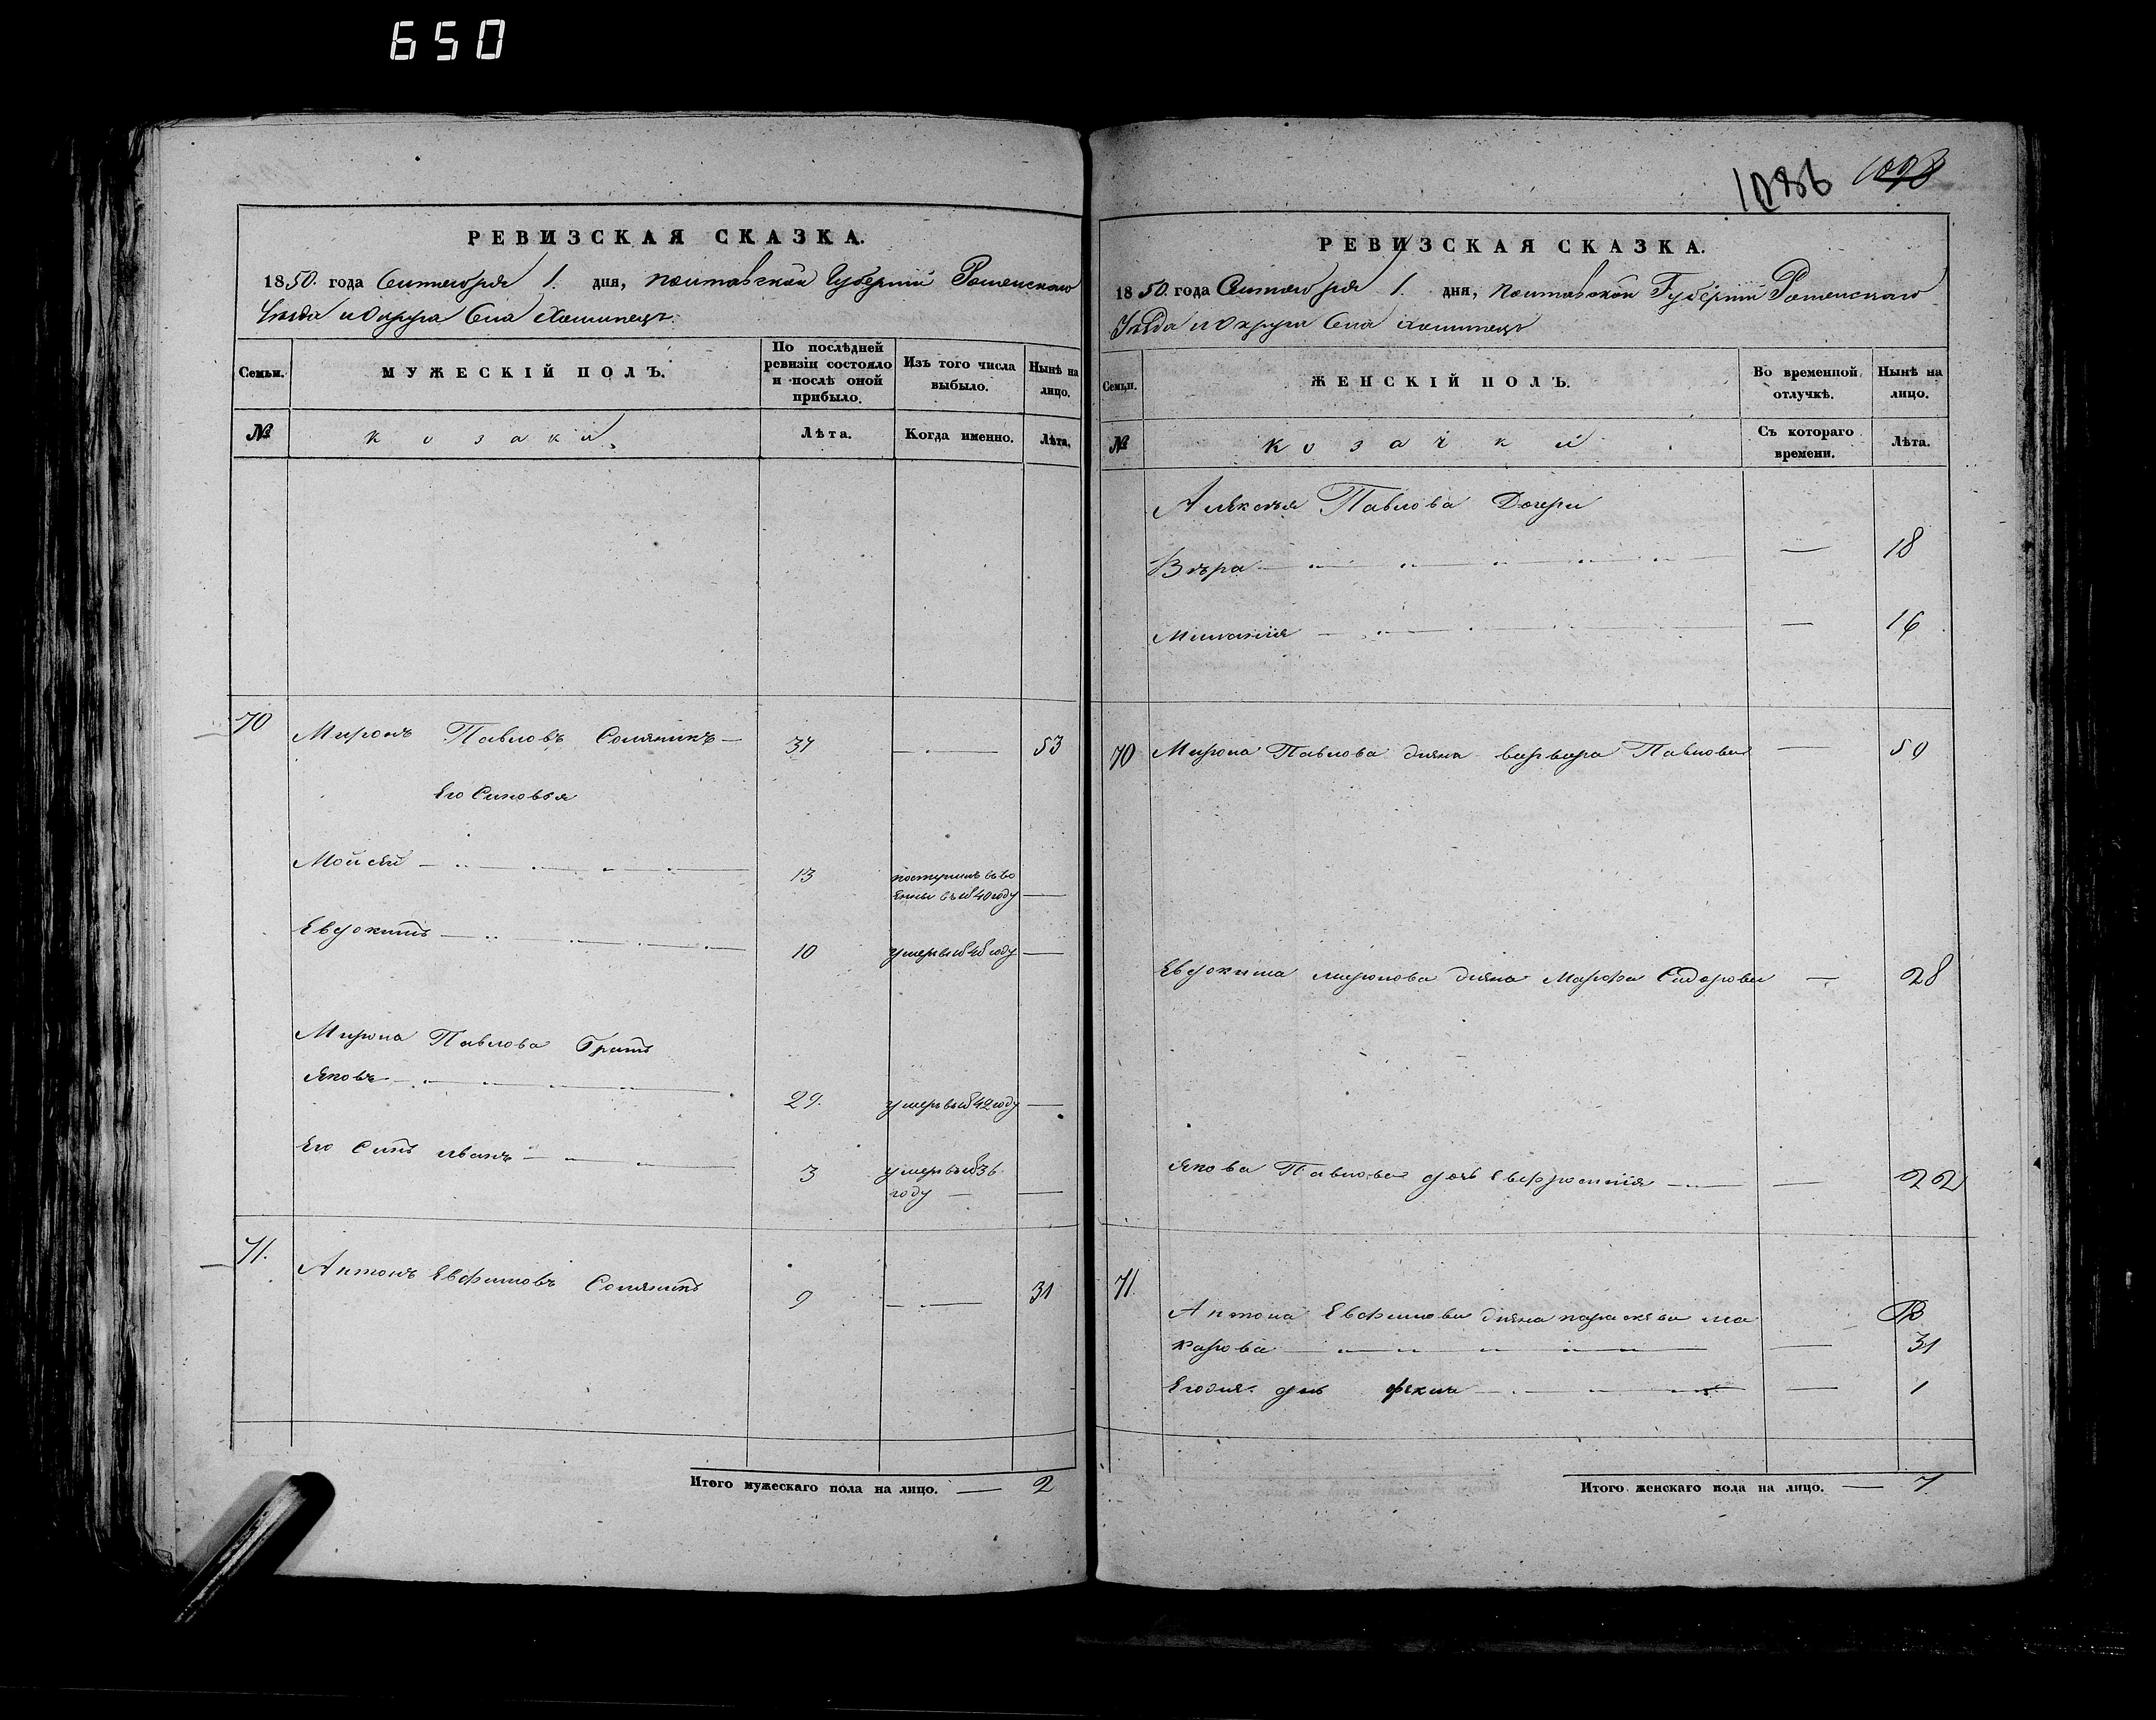 650
РЕВИЗСКАЯ СКАЗКА.
1850. года Сентября 1. дня, Полтавской Губернии Роменского
Уезда и Округа Села Хоминец:
Семьи.
МУЖЕСКІЙ ПОЛЪ.
По послѣдней ревизіи состояло и послѣ оной прибыло.
Изъ того числа выбыло.
Нынѣ на лицо.
№
козаки
Лѣта.
Когда именно.
Лѣта.
70 Миронъ Павловъ Соляникъ 37 53
Его Синовья
Мойсей 13 поступилъ въ во
въ 1840 году
Евдокимъ 10 умеръ въ 1848 году
Мирона Павлова Братъ
Яковъ 29. умеръ въ 1842 году
Его Синъ Иванъ 3 умеръ въ 1836
году
71. Антонъ Евфимовъ Соляникъ 9 31
Итого мужескаго пола на лицо. 2
1086 1098
РЕВИЗСКАЯ СКАЗКА.
1850. года Сентября 1. дня, Полтавской Губерніи Роменского
Уезда и Округа Села Хоминец
Семьи.
ЖЕНСКІЙ ПОЛЪ.
Во временной отлучкѣ.
Нынѣ на лицо.
№
козачки
Съ котораго времени.
Лѣта.
Алексея Павлова Дочери
Вѣра 18
Миланія 16
70 Мирона Павлова жена варвара Павлова 50
Евдокима миронова жена Марфа Сидорова 28
Якова Павлова дочь Евфросинія 22
71 Антона Евфимова жена параскева ма
карова 31
Егожъ дочь фекла 1
Итого женскаго пола на лицо. 7